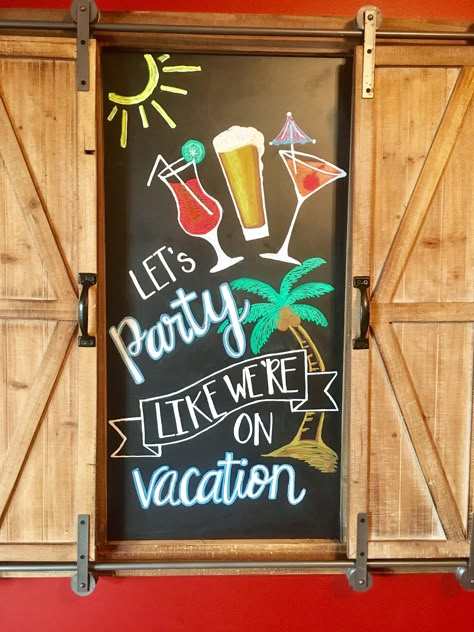 LET'S
Party
LIKE WE'RE
ON
vacation